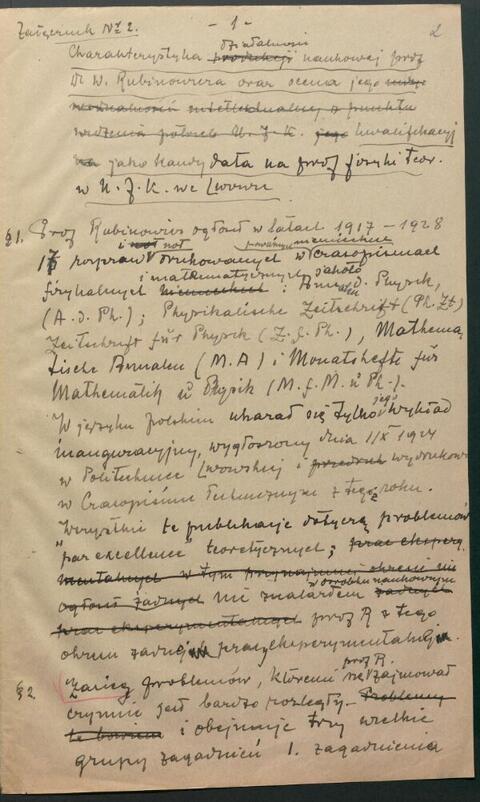 Załącznik Nr 2.
- 1 -
2
działalności
Charakterystyka produkcji naukowej prof.
Dr W. Rubinowicza oraz ocena jego
umysłowości intelektualnej z punktu
widzenia potrzeb U.J.K. jego kwalifikacyj
na jako kandydata na prof fizyki teor.
w U.J.K. we Lwowie
§1. Prof Rubinowicz ogłosił w latach 1917 – 1928
i not
17 rozpraw drukowanych w czasopismach
i matematycznych
fizykalnych niemieckich: Annal. d. Physik,
(A. d. Ph.); Physikalische Zeitschrift (Ph. Zt)
Zeitschrift für Physik (Z. f. Ph.), Mathema-
tische Annalen (M.A) i Monatshefte für
Mathematik u Physik (M. f. M. u Ph.).
jego
W języku polskim ukazał się tylko wykład
inauguracyjny, wygłoszony dnia 1924
w Politechnice Lwowskiej i przedruk wydrukow
w Czasopiśmie Technicznym z tegoż roku.
Wszystkie te publikacje dotyczą problemów
"par excellence" teoretycznych; prac ekspery
mentalnych w tym przynajmniej okresie nie
w dorobku naukowym
ogłosił żadnych nie znalazłem żadnych
prac eksperymentalnych prof R z tego
okresu żadnej pracy eksperymentalnej.
§2. Zasięg problemów, któremi prof R. się zajmował
czynnie jest bardzo rozległy. Problemy
te bowiem i obejmuje trzy wielkie
grupy zagadnień 1. zagadnienia